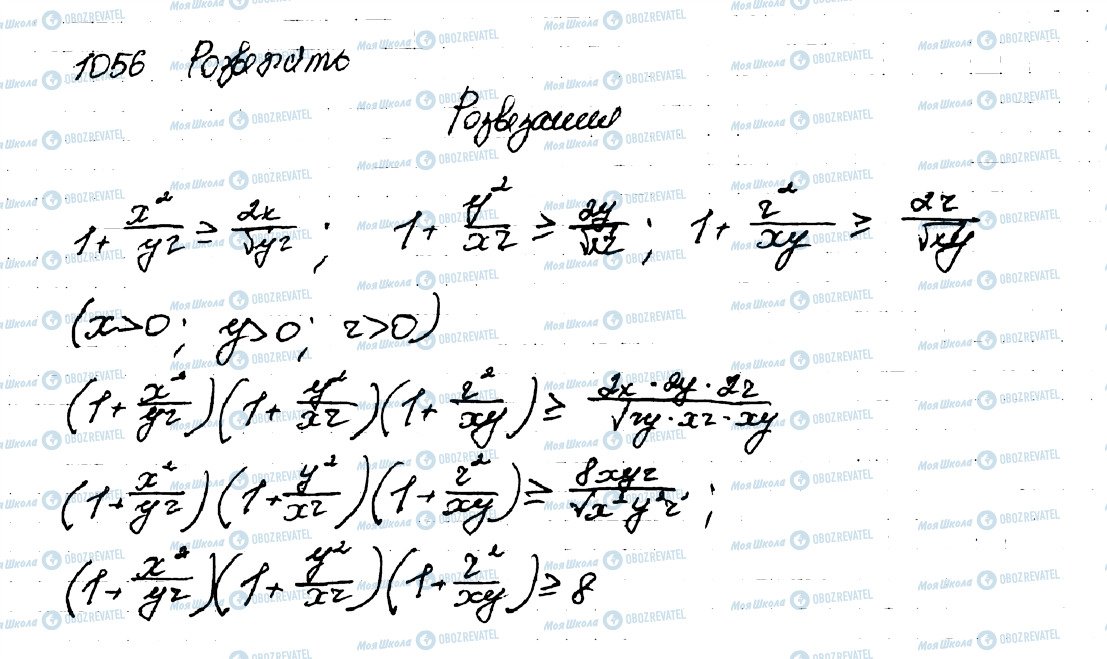 1056 Розвежіть
Розвезання
1 + x²/yz ≥ 2x/√yz ; 1 + y²/xz ≥ 2y/√xz ; 1 + z²/xy ≥ 2z/√xy
(x>0; y>0; z>0)
(1 + x²/yz)(1 + y²/xz)(1 + z²/xy) ≥ 2x·2y·2z/√zy·xz·xy
(1 + x²/yz)(1 + y²/xz)(1 + z²/xy) ≥ 8xyz/√x²y²z² ;
(1 + x²/yz)(1 + y²/xz)(1 + z²/xy) ≥ 8